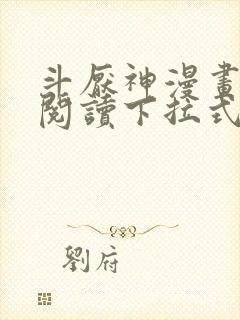 斗厭神漫畫
閱讀下拉式
劉府